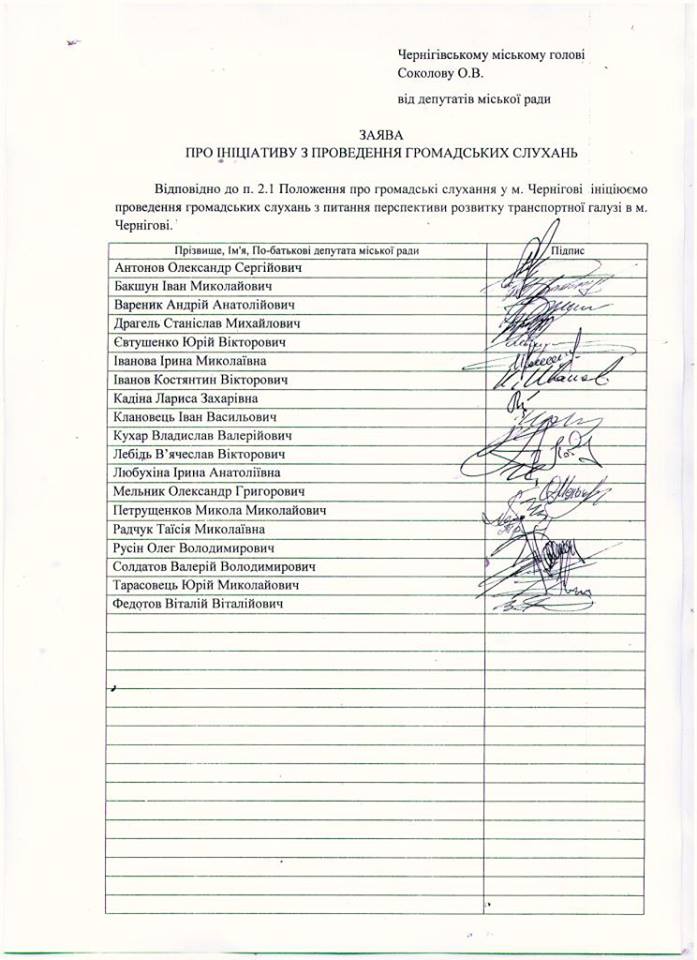 Чернігівському міському голові
Соколову О.В.
від депутатів міської ради
ЗАЯВА
ПРО ІНІЦІАТИВУ З ПРОВЕДЕННЯ ГРОМАДСЬКИХ СЛУХАНЬ
Відповідно до п. 2.1 Положення про громадські слухання у м. Чернігові ініціюємо
проведення громадських слухань з питання перспективи розвитку транспортної галузі в м.
Чернігові.
Прізвище, Ім'я, По-батькові депутата міської ради Підпис
Антонов Олександр Сергійович
Бакшун Іван Миколайович
Вареник Андрій Анатолійович
Драгель Станіслав Михайлович
Євтушенко Юрій Вікторович
Іванова Ірина Миколаївна
Іванов Костянтин Вікторович
Кадіна Лариса Захарівна
Клановець Іван Васильович
Кухар Владислав Валерійович
Лебідь В’ячеслав Вікторович
Любухіна Ірина Анатоліївна
Мельник Олександр Григорович
Петрущенков Микола Миколайович
Радчук Таїсія Миколаївна
Русін Олег Володимирович
Солдатов Валерій Володимирович
Тарасовець Юрій Миколайович
Федотов Віталій Віталійович